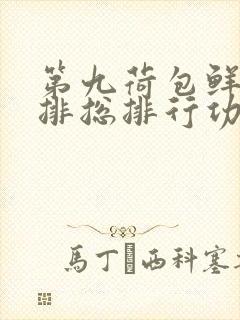 第九荷包鲜
排总排行功
馬丁�西科塞